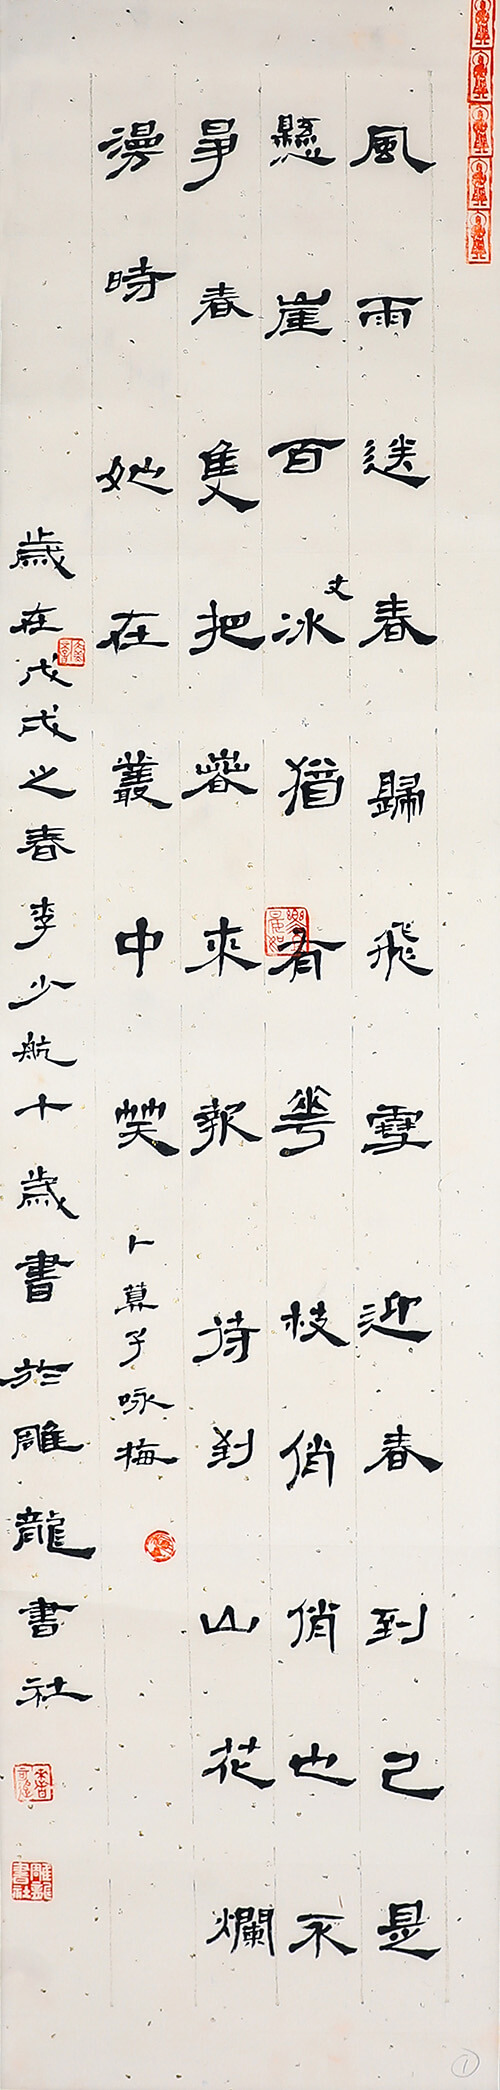 風雨送春歸飛雪迎春到已是
懸崖百丈冰猶有華枝俏俏也不
爭春隻把春來報待到山花爛
漫時她在叢中笑 卜算子咏梅
歲在戊戌之春李少航十歲書於雕龍書社
雕龍書社
①